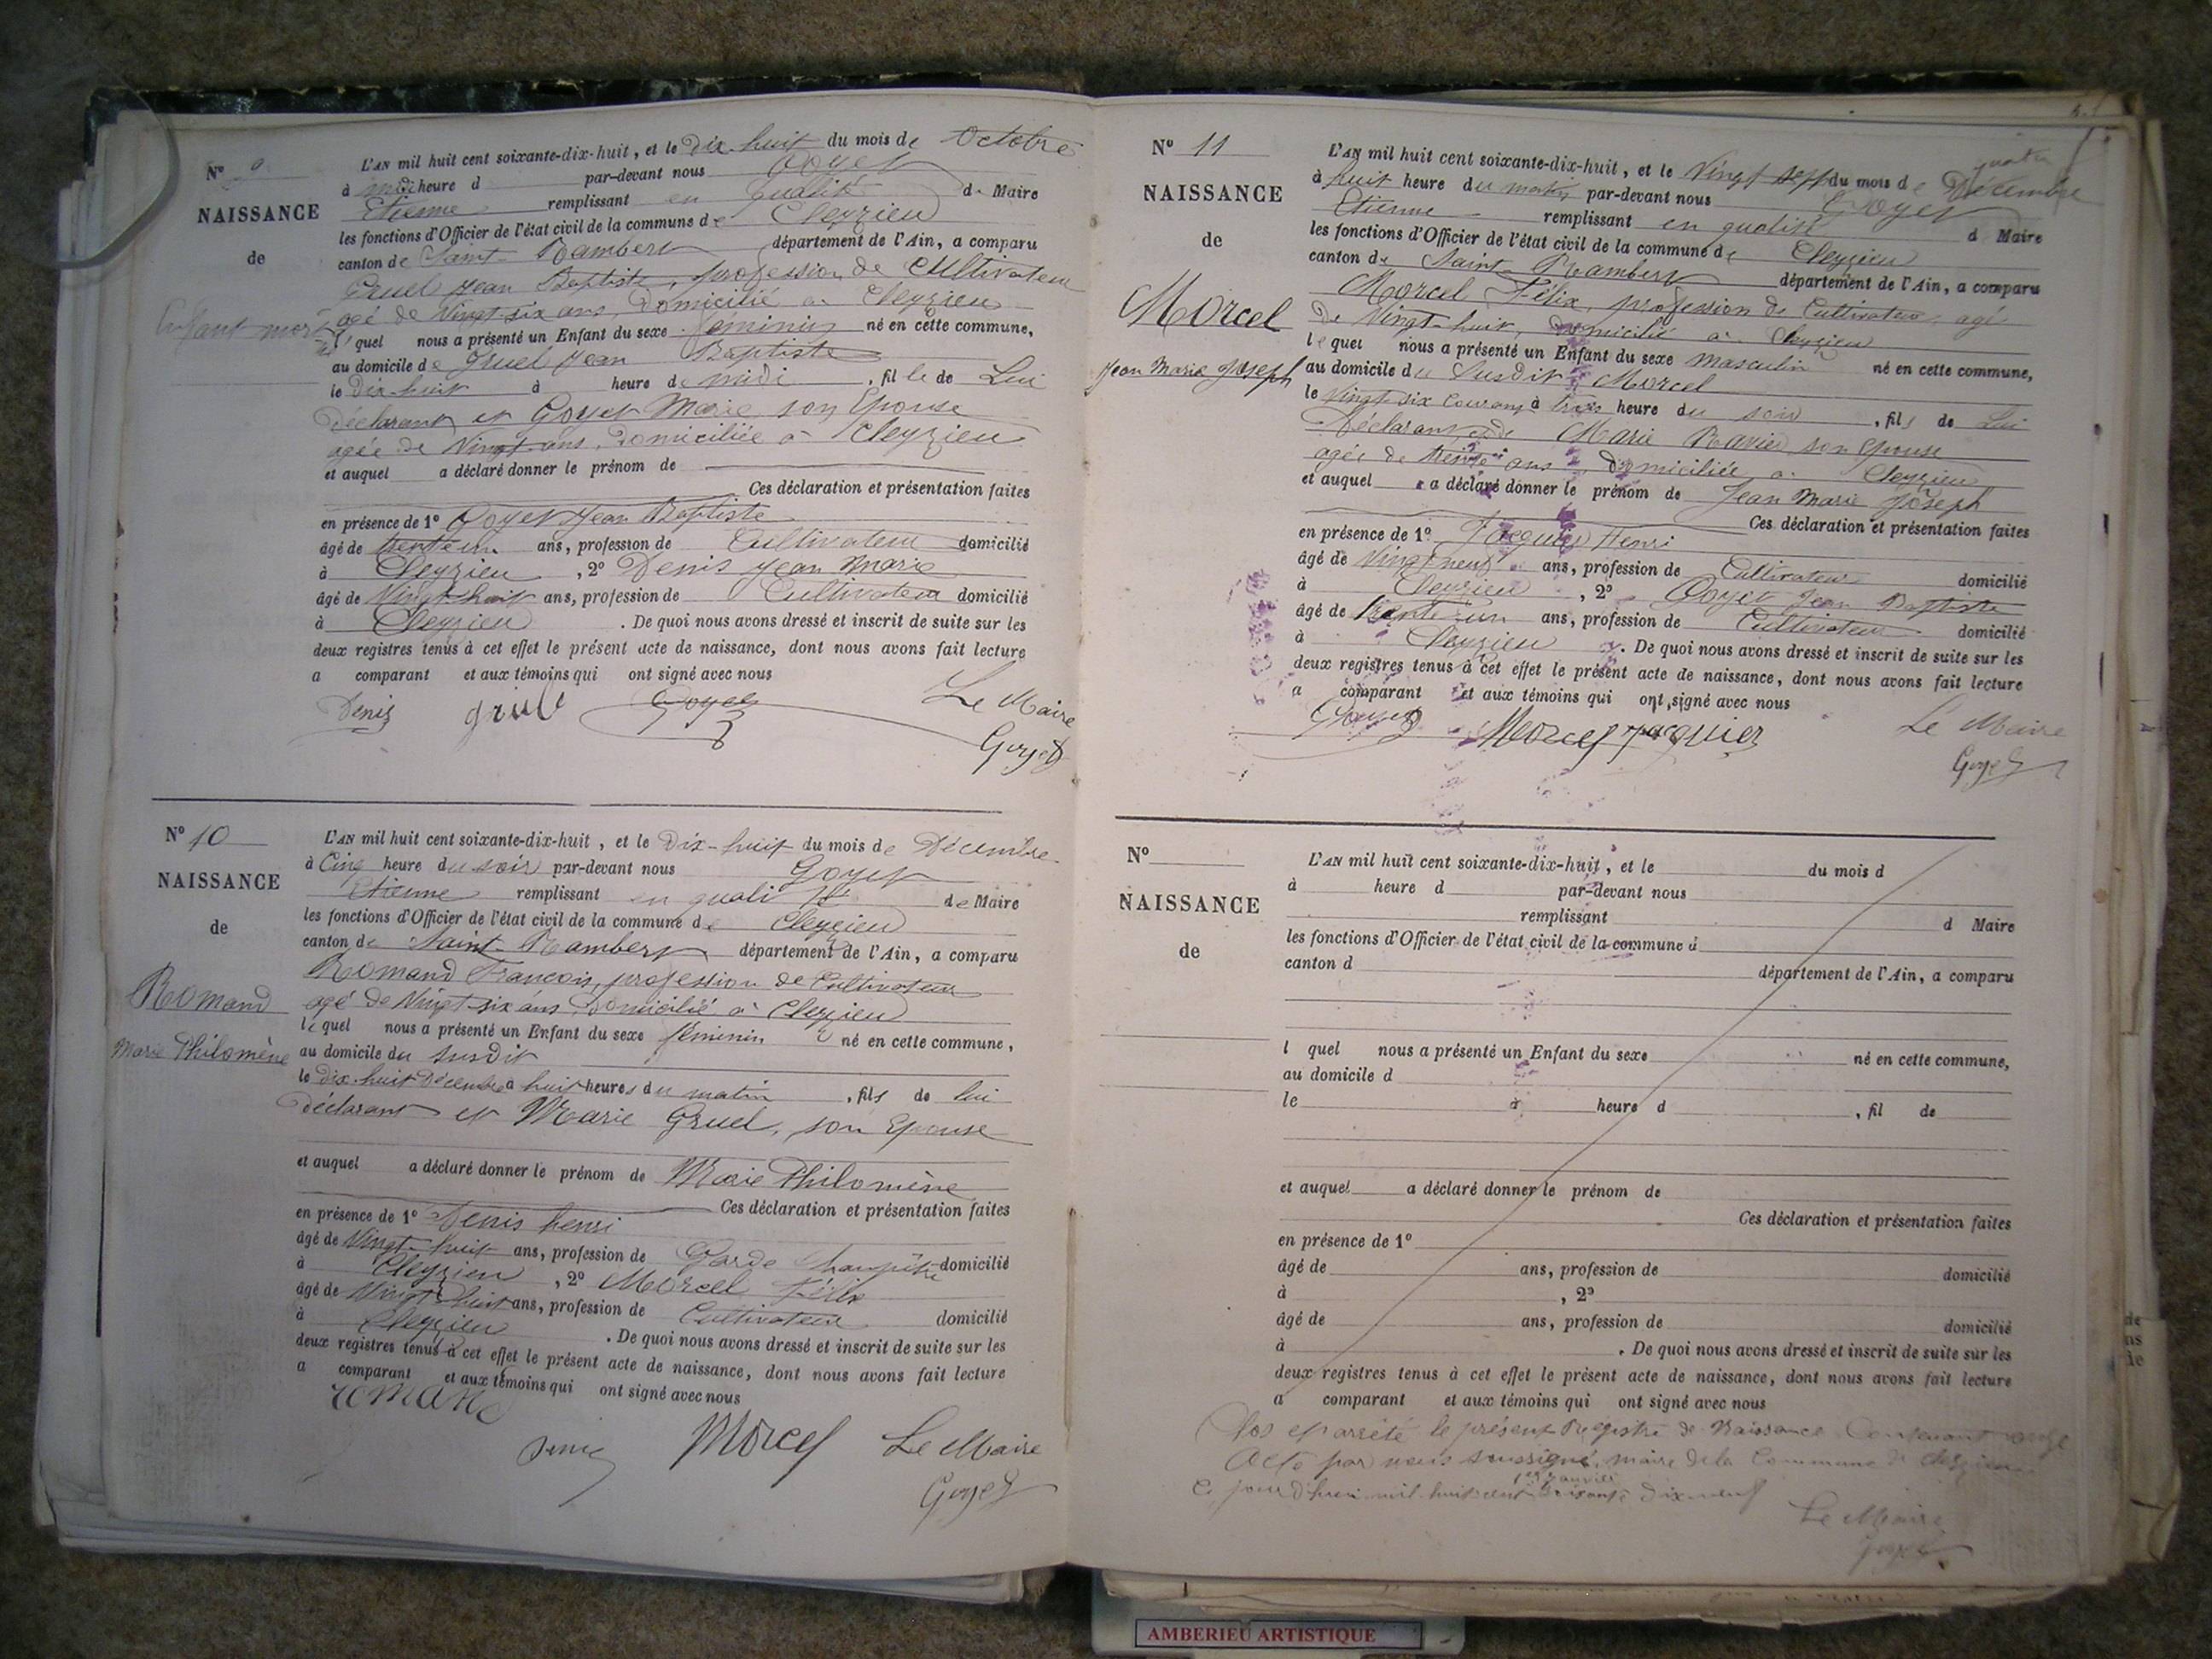 N° 9
NAISSANCE
de
Enfant mort
L'AN mil huit cent soixante-dix-huit, et le Dix-huit du mois de Octobre
à midi heure d par-devant nous Goyet
Etienne remplissant en qualité de Maire
les fonctions d'Officier de l'état civil de la commune de Cleyzieu
canton de Saint-Rambert département de l'Ain, a comparu
Gruel Jean Baptiste, profession de Cultivateur
agé de Vingt-six ans, Domicilié à Cleyzieu
lequel nous a présenté un Enfant du sexe féminin né en cette commune,
au domicile de Gruel Jean Baptiste
le Dix huit à heure de midi, fille de Lui
Déclarant et Goyet Marie son Epouse
agée de Vingt ans, Domiciliée à Cleyzieu
et auquel a déclaré donner le prénom de
Ces déclaration et présentation faites
en présence de 1° Goyet Jean Baptiste
âgé de trente un ans, profession de Cultivateur domicilié
à Cleyzieu, 2° Denis Jean Marie
âgé de Vingt-huit ans, profession de Cultivateur domicilié
à Cleyzieu. De quoi nous avons dressé et inscrit de suite sur les
deux registres tenus à cet effet le présent acte de naissance, dont nous avons fait lecture
a comparant et aux témoins qui ont signé avec nous
Denis Goyet Le Maire
Goyet
N° 10
NAISSANCE
de
Romand
Marie Philomène
L'AN mil huit cent soixante-dix-huit, et le Dix-huit du mois de Décembre
à Cinq heure du soir par-devant nous Goyet
Etienne remplissant en qualité de Maire
les fonctions d'Officier de l'état civil de la commune de Cleyzieu
canton de Saint-Rambert département de l'Ain, a comparu
Romand François, profession de Cultivateur
agé de Vingt-six ans, Domicilié à Cleyzieu
lequel nous a présenté un Enfant du sexe féminin né en cette commune,
au domicile du susdit
le dix-huit Décembre à huit heures du matin, fils de lui
déclarant et Marie Gruel, son Epouse
et auquel a déclaré donner le prénom de Marie Philomène
Ces déclaration et présentation faites
en présence de 1° Denis henri
âgé de Vingt-huit ans, profession de Garde Champêtre domicilié
à Cleyzieu, 2° Morcel Félix
âgé de Vingt-huit ans, profession de Cultivateur domicilié
à Cleyzieu. De quoi nous avons dressé et inscrit de suite sur les
deux registres tenus à cet effet le présent acte de naissance, dont nous avons fait lecture
a comparant et aux témoins qui ont signé avec nous
romand
Denis Morcel Le Maire
Goyet
N° 11
NAISSANCE
de
Morcel
Jean Marie Joseph
L'AN mil huit cent soixante-dix-huit, et le Vingt sept du mois de Décembre
à huit heure du matin par-devant nous Goyet
Etienne remplissant en qualité d Maire
les fonctions d'Officier de l'état civil de la commune de Cleyzieu
canton de Saint-Rambert département de l'Ain, a comparu
Morcel Félix, profession de Cultivateur, agé
de Vingt-huit, domicilié à Cleyzieu
lequel nous a présenté un Enfant du sexe masculin né en cette commune,
au domicile du Susdit Morcel
le Vingt-six Courant à trois heure du soir, fils de Lui
Déclarant et de Marie Ravier son Epouse
agée de trente ans domiciliée à Cleyzieu
et auquel a déclaré donner le prénom de Jean Marie Joseph
Ces déclaration et présentation faites
en présence de 1° Jacquier Henri
âgé de Vingt neuf ans, profession de Cultivateur domicilié
à Cleyzieu, 2° Goyet Jean Baptiste
âgé de trente un ans, profession de Cultivateur domicilié
à Cleyzieu. De quoi nous avons dressé et inscrit de suite sur les
deux registres tenus à cet effet le présent acte de naissance, dont nous avons fait lecture
a comparant et aux témoins qui ont signé avec nous
Goyet Morcel Jacquier Le Maire
Goyet
N°
NAISSANCE
de
L'AN mil huit cent soixante-dix-huit, et le du mois d
à heure d par-devant nous
remplissant d Maire
les fonctions d'Officier de l'état civil de la commune d
canton d département de l'Ain, a comparu
l quel nous a présenté un Enfant du sexe né en cette commune,
au domicile d
le à heure d, fil de
et auquel a déclaré donner le prénom de
Ces déclaration et présentation faites
en présence de 1°
âgé de ans, profession de domicilié
à, 2°
âgé de ans, profession de domicilié
à. De quoi nous avons dressé et inscrit de suite sur les
deux registres tenus à cet effet le présent acte de naissance, dont nous avons fait lecture
a comparant et aux témoins qui ont signé avec nous
Clos et arrêté le présent Registre de Naissance Contenant onze
Acte par nous soussigné, maire de la Commune de Cleyzieu
Ce jourd'hui 1er janvier mil huit cent soixante dix neuf
Le Maire
Goyet
AMBERIEU ARTISTIQUE